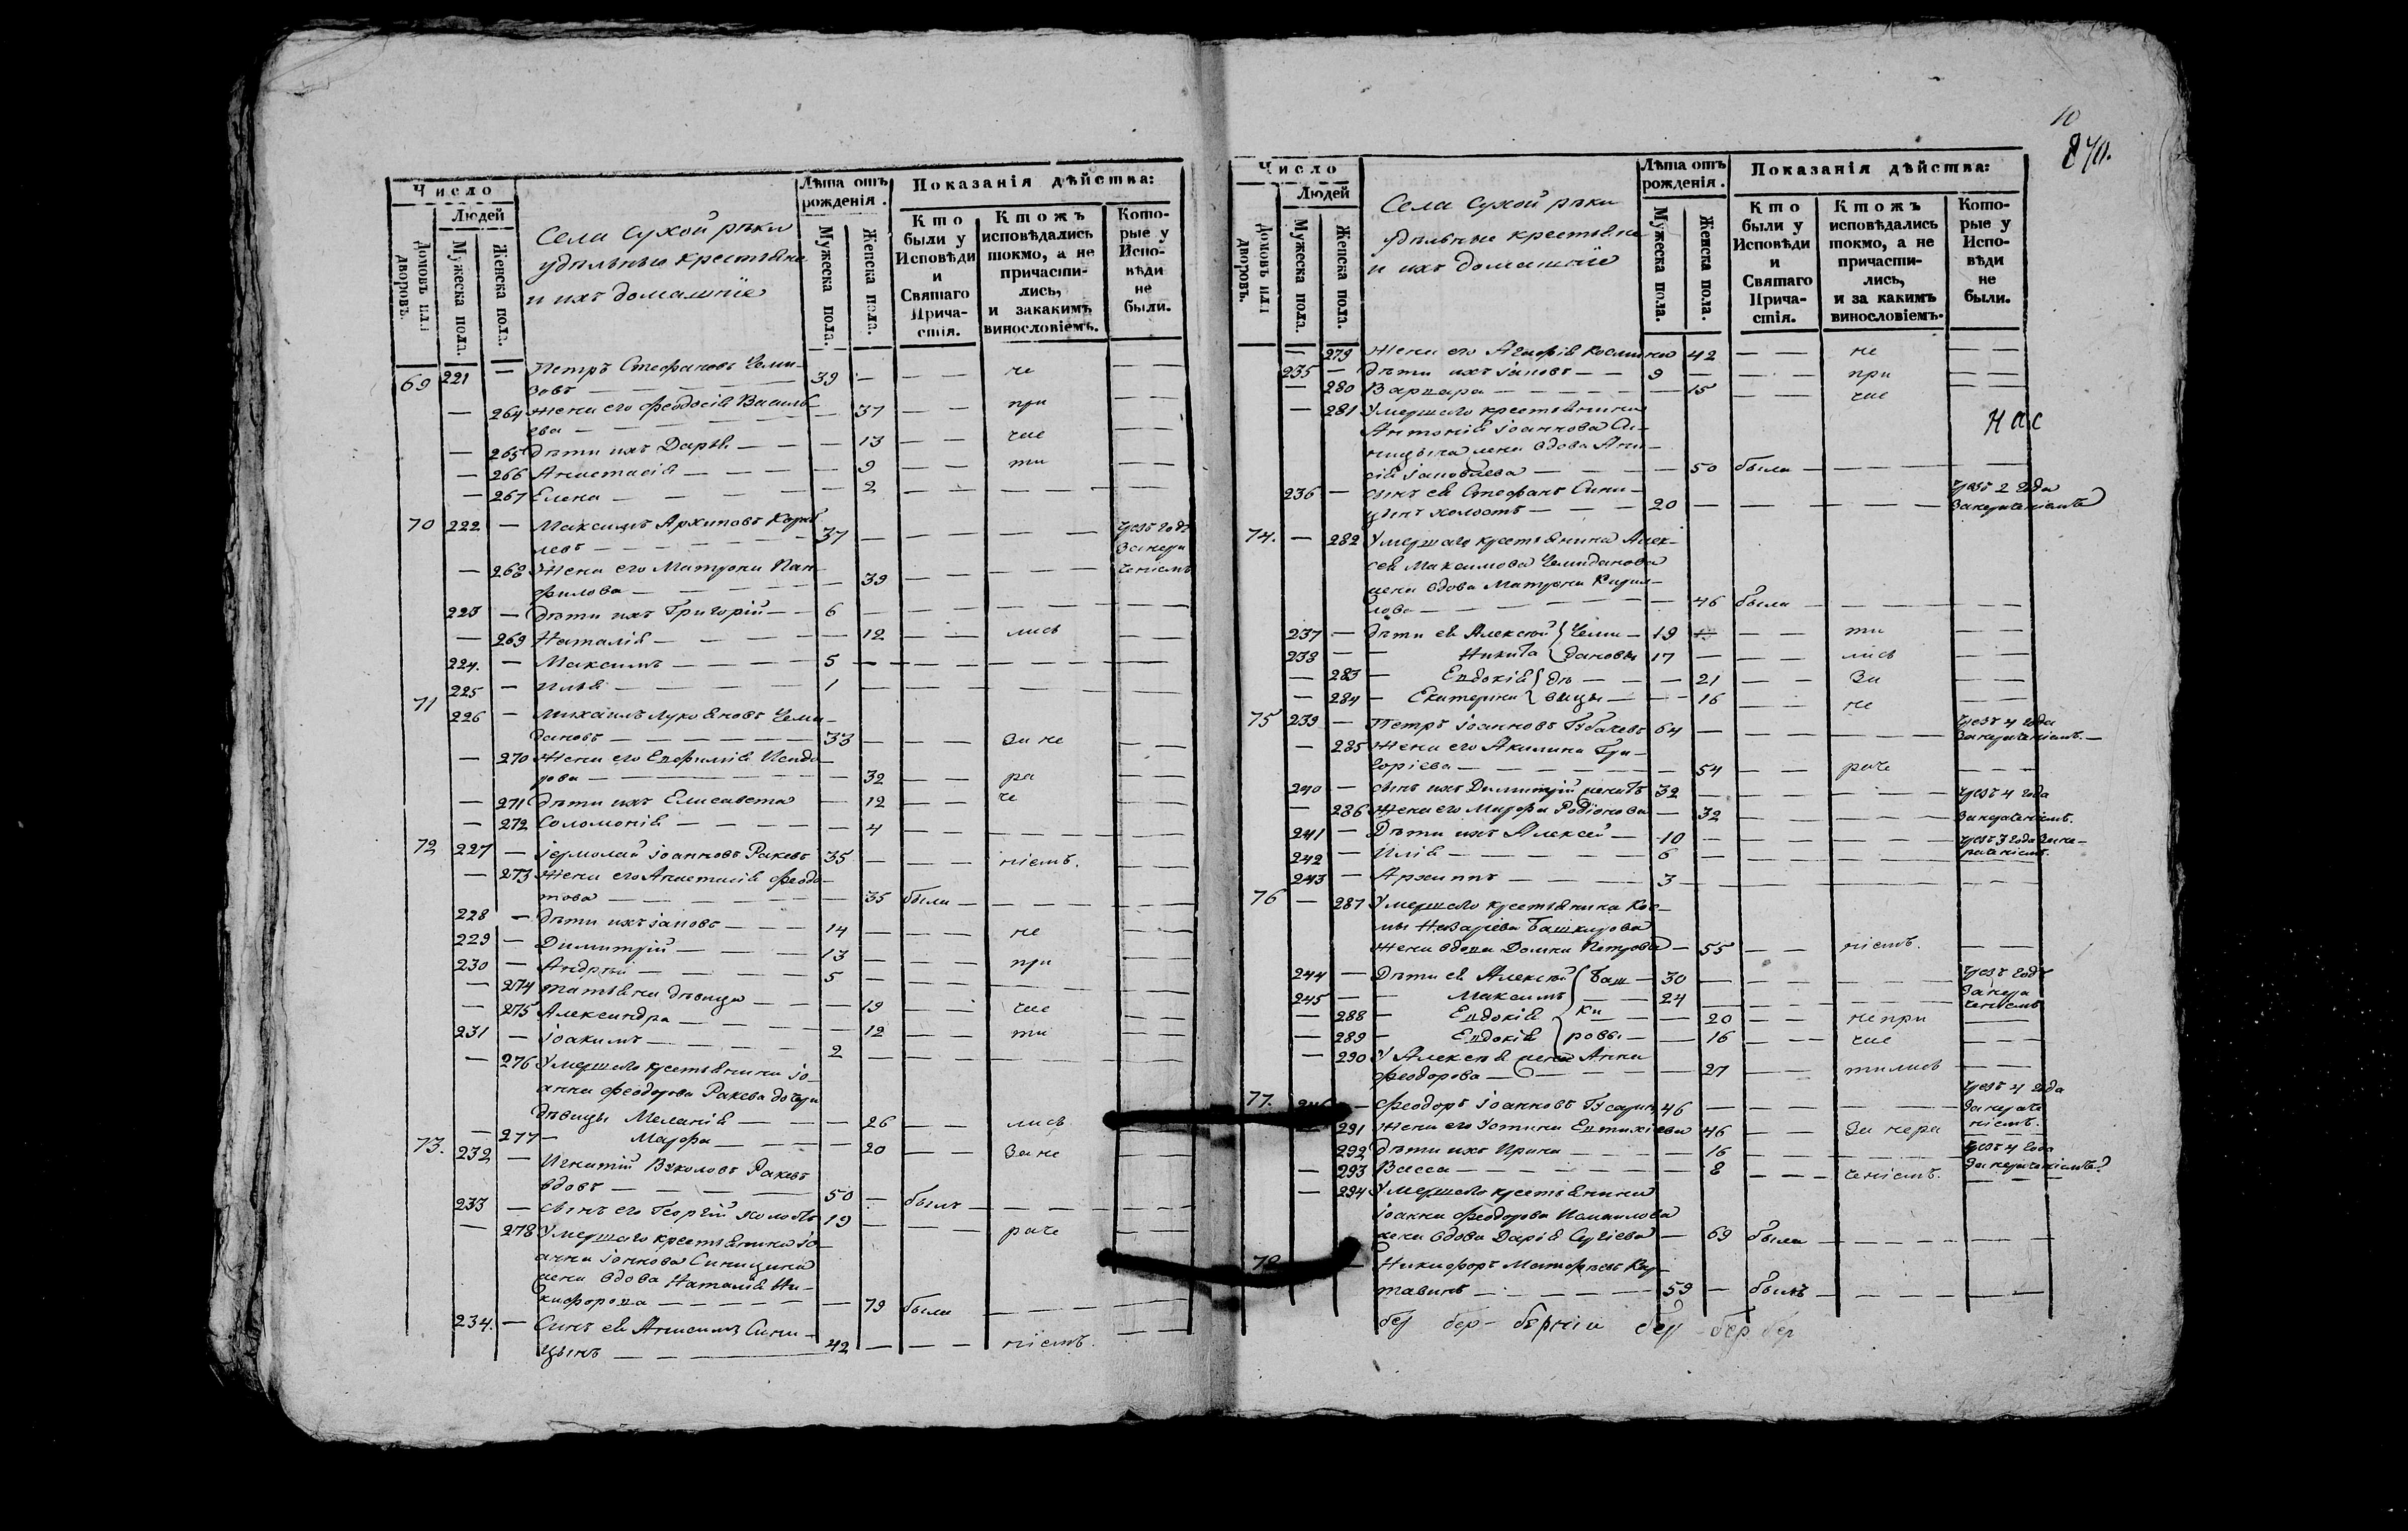 Число
Людей
Домовъ или дворовъ.
Мужеска пола.
Женска пола.
Села Сухой рѣки
удѣльные крестьяне
и ихъ домашніе
Лѣта отъ рожденія.
Мужеска пола.
Женска пола.
Показанія дѣйства:
Кто были у Исповѣди и Святаго Прича-стія.
Ктожъ исповѣдались токмо, а не причасти-лись, и закакимъ винословіемъ.
Кото-рые у Испо-вѣди не были.
69 221 — Петръ Стефановъ Чеми-
39 — — — не — —
— 264 Жена его Феодосія Василь-
ева — — 37 — — при — —
— 265 Дѣти ихъ Дарья — — 13 — — чис — —
— 266 Анастасія — — 9 — — ти — —
— 267 Елена — — 2 — — — —
70 222 — Максимъ Архиповъ
левъ — 37 — — — — чрезъ годъ
за нера
— 268 Жена его Матрона Пан-
филова — — 39 — — — — ченіемъ
223 — Дѣти ихъ Григорій — 6 — — — —
— 269 Наталія — — 12 — — лись
224. — Максимъ — 5 — — — —
225 — Илья — 1 — — — —
71 226 — Михаилъ Лукояновъ Чеми-
дановъ — 33 — — — За не — —
— 270 Жена его Евфимія Исидо-
рова — — 32 — — ра — —
— 271 Дѣти ихъ Елисавета — 12 — — че — —
— 272 Соломонія — — 4 — — — —
72 227 — Іермолай Іоанновъ Ракевъ 35 — — — ніемъ. — —
— 273 Жена его Анастасія Феодо-
това — — 35 были — — — —
228 — Дѣти ихъ Іаковъ — 14 — — — не — —
229 — Димитрій — 13 — — — при — —
230 — Андрей — 5 — — — —
— 274 Татьяна дѣвица — — 19 — — чис — —
— 275 Александра — — 12 — — ти — —
231 — Іоакимъ — 2 — — — —
— 276 Умершаго крестьянина Іо-
анна Феодорова Ракева дочери
дѣвицы Меланія — — 26 — — лись — —
— 277 — Марфа — — 20 — — За не — —
73. 232 — Игнатій Вуколовъ Ракевъ
вдовъ — 50 — былъ — — — —
233 — Сынъ его Георгій холостъ 19 — — — раче — —
— 278 Умершаго крестьянина Іо-
анна Синицына
жена вдова Наталія Ни-
кифорова — — 79 была — — — —
234. — Сынъ ея Анисимъ Сини-
цынъ — 42 — — — ніемъ. — —
10
870.
Число
Людей
Домовъ или дворовъ.
Мужеска пола.
Женска пола.
Села Сухой рѣки
удѣльные крестьяне
и ихъ домашніе
Лѣта отъ рожденія.
Мужеска пола.
Женска пола.
Показанія дѣйства:
Кто были у Исповѣди и Святаго Прича-стія.
Ктожъ исповѣдались токмо, а не причасти-лись, и за какимъ винословіемъ.
Кото-рые у Испо-вѣди не были.
— 279 Жена его Агафія Космина 42 — — не — —
235 — Дѣти ихъ Іаковъ — 9 — — — при — —
— 280 Варвара — — 15 — — чис — —
— 281 Умершаго крестьянина
Антонія Іоаннова Си-
ницына жена вдова Ани-
сія Іаковлева — — 50 была — — — —
236 — Сынъ ея Стефанъ Сини-
цынъ холостъ — 20 — — — — чрезъ 2 года
За нераченіемъ
74. — 282 Умершаго крестьянина Алек-
сея Максимова Чемиданова
жена вдова Матрона Кирил-
лова — — 46 была — — — —
237 — Дѣти ея Алексѣй Чеми- 19 — — ти — —
238 — — Никита дановы 17 — — — лись — —
— 283 — Евдокія дѣ- — 21 — — За — —
— 284 — Екатерина вицы — — 16 — — не — —
75 239 — Петръ Іоанновъ Губачевъ 64 — — — — чрезъ 4 года
За нераченіемъ. —
— 285 Жена его Акилина Гри-
горіева — — 54 — — раче — —
240 — Сынъ ихъ Димитрій женатъ 32 — — — — чрезъ 4 года
— 286 Жена его Марфа Родіонова — 32 — — — За нераченіемъ.
241 — Дѣти ихъ Алексей — 10 — — — — чрезъ 3 года За не-
раченіемъ.
242 — Илія — 6 — — — —
243 — Архиппъ — 3 — — — —
76 — 287 Умершаго крестьянина Кос-
мы Назаріева Башкирова
жена вдова Домна Петрова — 55 — — ніемъ. — —
244 — Дѣти ея Алексѣй Баш- 30 — — — — чрезъ годъ
245 — — Максимъ — 24 — — — — За нера
ченіемъ
— 288 — Евдокія ки — — 20 — — не при — —
— 289 — Евдокія ровы — — 16 — — чис — —
— 290 У Алексѣя жена Анна
Феодорова — — 27 — — тились — —
77. — Феодоръ Іоанновъ Гусаринъ 46 — — — — чрезъ 4 года
За нераче
ніемъ.
291 Жена его Устина Евтихіева 46 — — За нера
292 Дѣти ихъ Ирина — — 16 — — — чрезъ 4 года
За нераченіемъ
— 293 Васса — — 8 — — ченіемъ. — —
— 294 Умершаго крестьянина
Іоанна Феодорова Исмаилова
жена вдова Дарія Сергіева — 69 была — — — —
78 — Никифоръ Матфеевъ
тавинъ — 59 — былъ — — — —
бер бер- бернін бер - бер бер